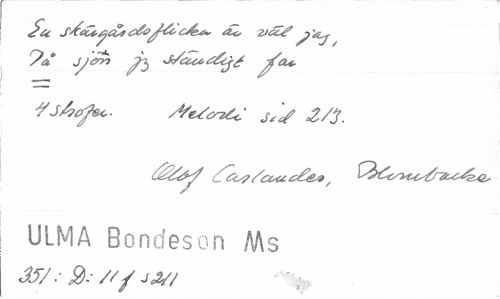 En skärgårdsflicka är väl jag,
På sjön jg ständigt far
=
4 strofer. Melodi sid 213.
Olof Carlander, Blombacka
ULMA Bondeson Ms
351: D: 11 f s 211